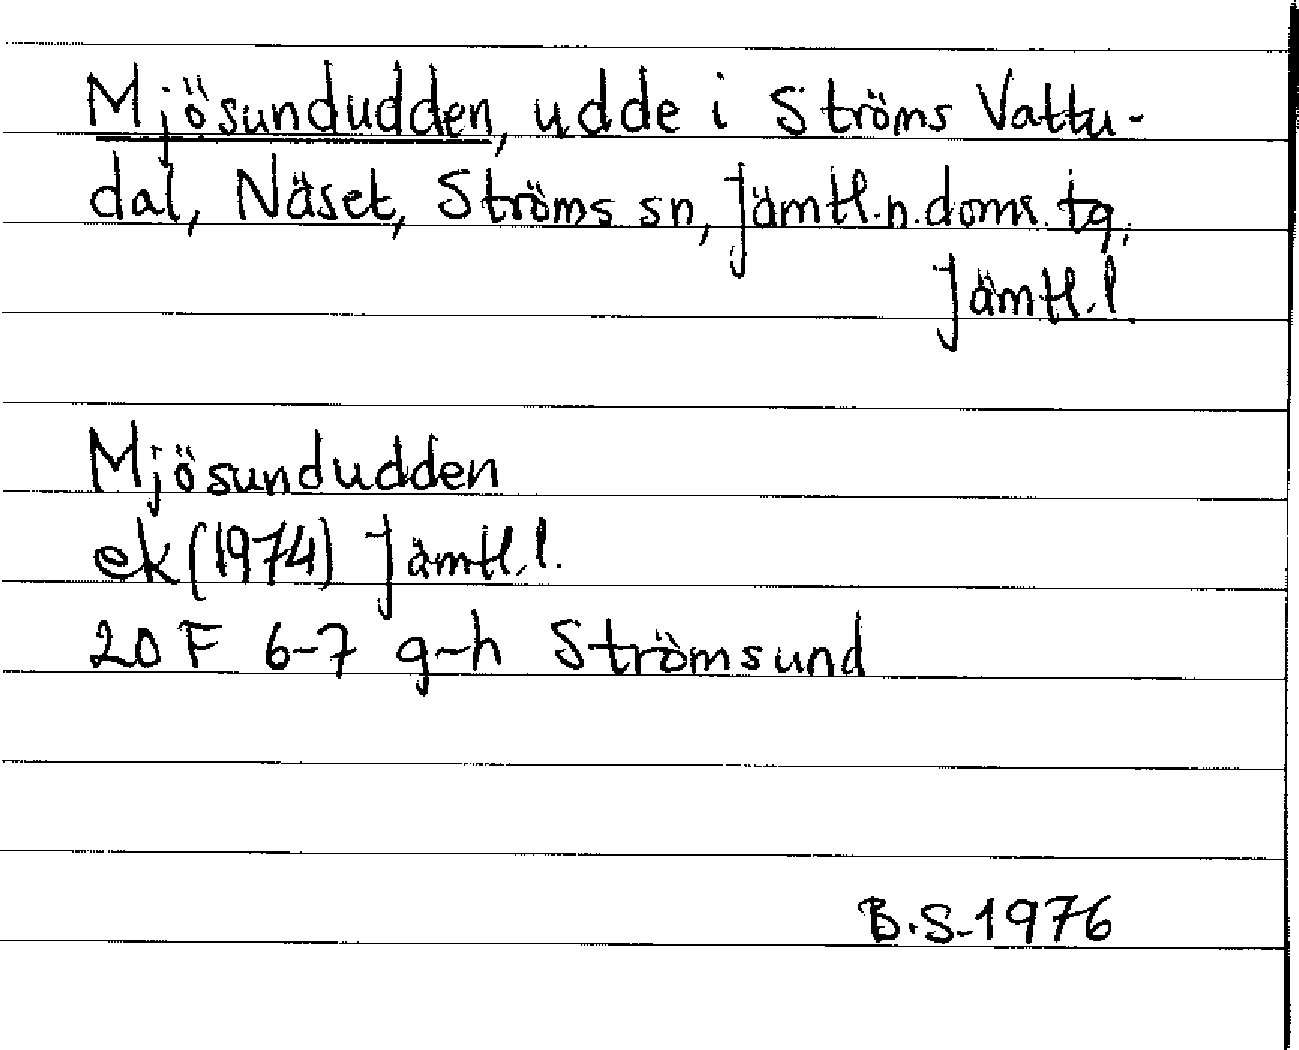 Mjösundudden, udde i Ströms Vattu-
dal, Näset, Ströms sn, Jämtl.n.doms.tg,
Jämtl.l.
Mjösundudden
ek (1974) Jämtl.l.
20 F 6-7 g-h Strömsund
B.S. 1976